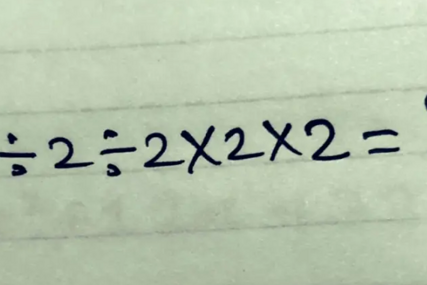 ÷ 2 ÷ 2 × 2 × 2 =